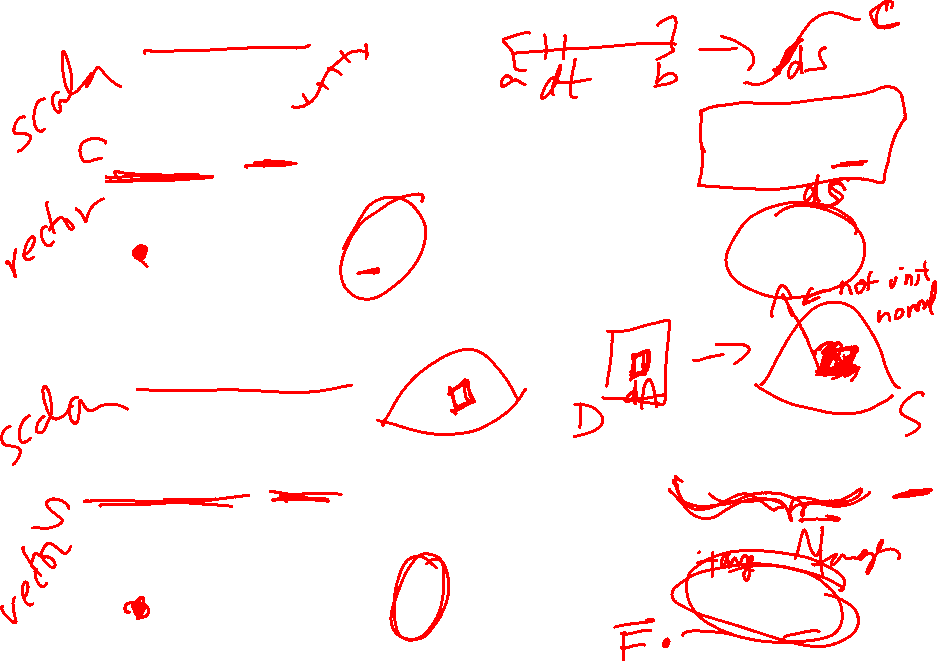 scalar
a dt b
ds
C
C
vector
ds
not unit
normal
scalar
D
dA
S
S
vector
F